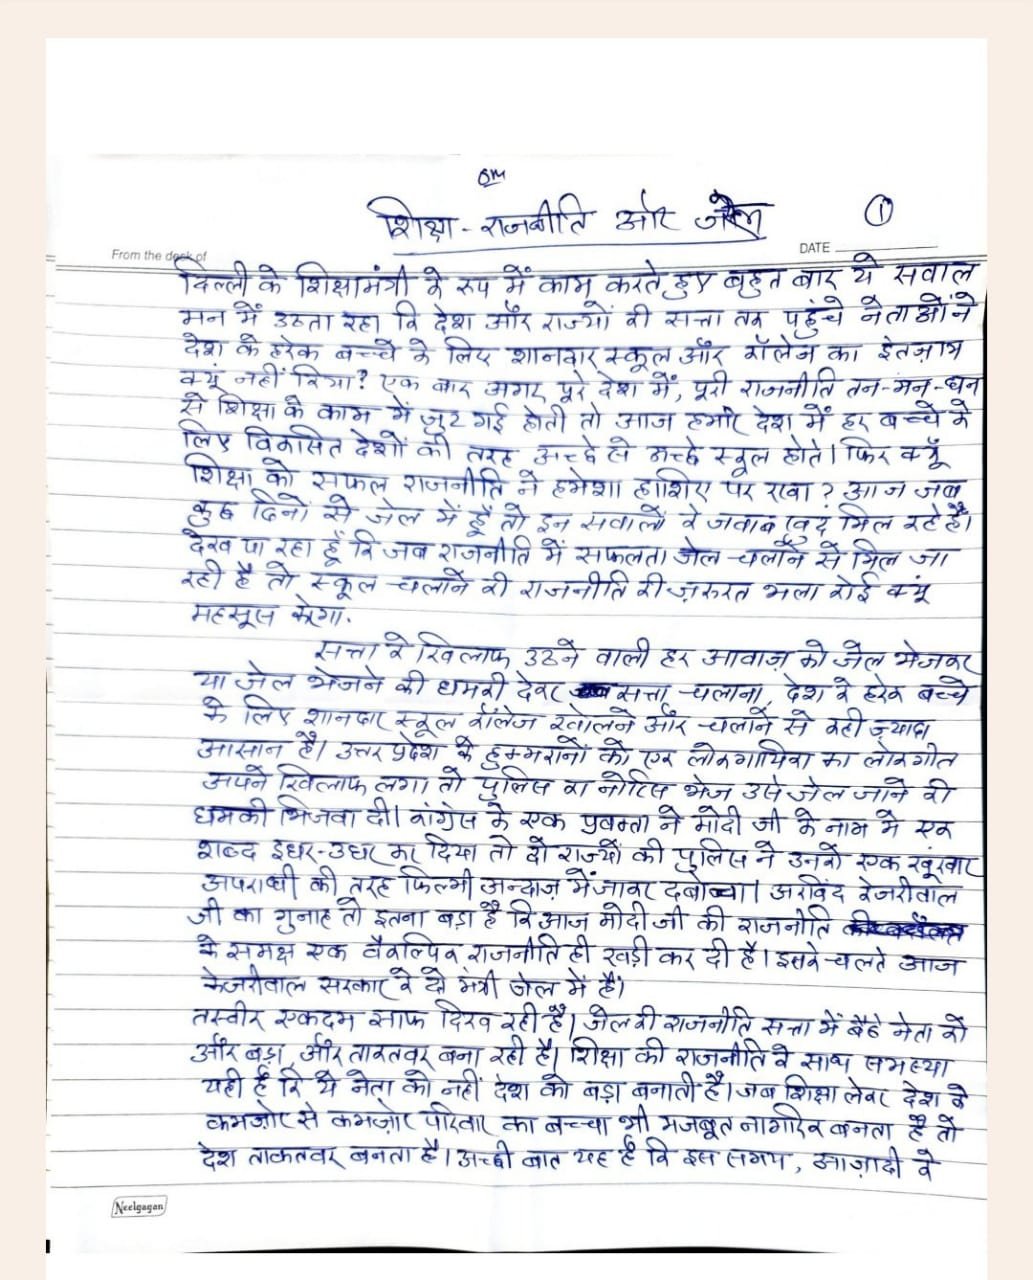 ॐ
शिक्षा - राजनीति और जेल
①
From the desk of
DATE
दिल्ली के शिक्षामंत्री के रूप में काम करते हुए बहुत बार ये सवाल
मन में उठता रहा कि देश और राज्यों की सत्ता तक पहुंचे नेताओं ने
देश के हरेक बच्चे के लिए शानदार स्कूल और कॉलेज का इंतज़ाम
क्यूं नहीं किया? एक बार अगर पूरे देश में, पूरी राजनीति तन-मन-धन
से शिक्षा के काम में जुट गई होती तो आज हमारे देश में हर बच्चे के
लिए विकसित देशों की तरह अच्छे से अच्छे स्कूल होते। फिर क्यूँ
शिक्षा को सफल राजनीति ने हमेशा हाशिए पर रखा? आज जब
कुछ दिनों से जेल में हूँ तो इन सवालों के जवाब खुद मिल रहे हैं।
देख पा रहा हूँ कि जब राजनीति में सफलता जेल चलाने से मिल जा
रही है तो स्कूल चलाने की राजनीति की ज़रुरत भला कोई क्यूं
महसूस करेगा.
सत्ता के खिलाफ उठने वाली हर आवाज़ को जेल भेजकर
या जेल भेजने की धमकी देकर सत्ता चलाना, देश के हरेक बच्चे
के लिए शानदार स्कूल कॉलेज खोलने और चलाने से कहीं ज़्यादा
आसान है। उत्तर प्रदेश के हुक्मरानों को एक लोकगायिका का लोकगीत
अपने खिलाफ लगा तो पुलिस का नोटिस भेज उसे जेल जाने की
धमकी भिजवा दी। कांग्रेस के एक प्रवक्ता ने मोदी जी के नाम में एक
शब्द इधर-उधर कर दिया तो दो राज्यों की पुलिस ने उनको एक खूंखार
अपराधी की तरह फिल्मी अन्दाज़ में जाकर दबोचा। अरविंद केजरीवाल
जी का गुनाह तो इतना बड़ा है कि आज मोदी जी की राजनीति
के समक्ष एक वैकल्पिक राजनीति ही खड़ी कर दी है। इसके चलते आज
केजरीवाल सरकार के दो मंत्री जेल में हैं।
तस्वीर एकदम साफ दिख रही है। जेल की राजनीति सत्ता में बैठे नेता को
और बड़ा, और ताकतवर बना रही है। शिक्षा की राजनीति के साथ समस्या
यही है कि ये नेता को नहीं देश को बड़ा बनाती है। जब शिक्षा लेकर देश के
कमज़ोर से कमज़ोर परिवार का बच्चा भी मजबूत नागरिक बनता है तो
देश ताकतवर बनता है। अच्छी बात यह है कि इस समय, आज़ादी के
Neelgagan